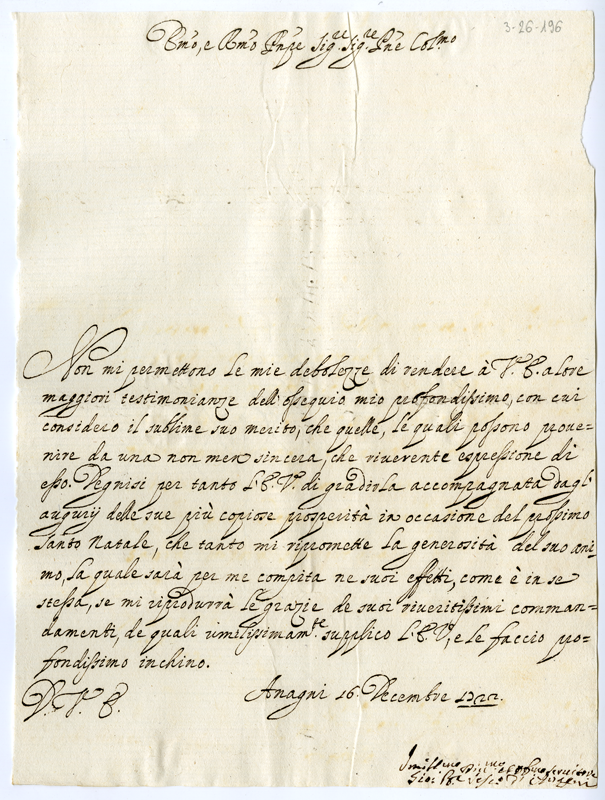 3-26-196
Emo, e Rmo Pnpe Sig.re Sig.re Pne Col.mo
Non mi permettono le mie debolezze di rendere à V. E. alcre
maggiori testimonianze dell'ossequio mio profondissimo, con cui
considero il sublime suo merito, che quelle, le quali possono prove=
nire da una non men sincera, che riverente espressione di
esso. Degnisi per tanto L. E. V. di gradirla accompagnata dagl'
augurij delle sue più copiose prosperità in occasione del prossimo
santo Natale, che tanto mi ripromette la generosità del suo ani=
mo, la quale sarà per me compita ne suoi effetti, come è in se
stessa, se mi riprodurrà le grazie de suoi riveritissimi comman=
damenti, de quali umilissimam.te supplico L. E. V., e le faccio pro=
fondissimo inchino.
D. V. E.
Anagni 16 Decembre 1722.